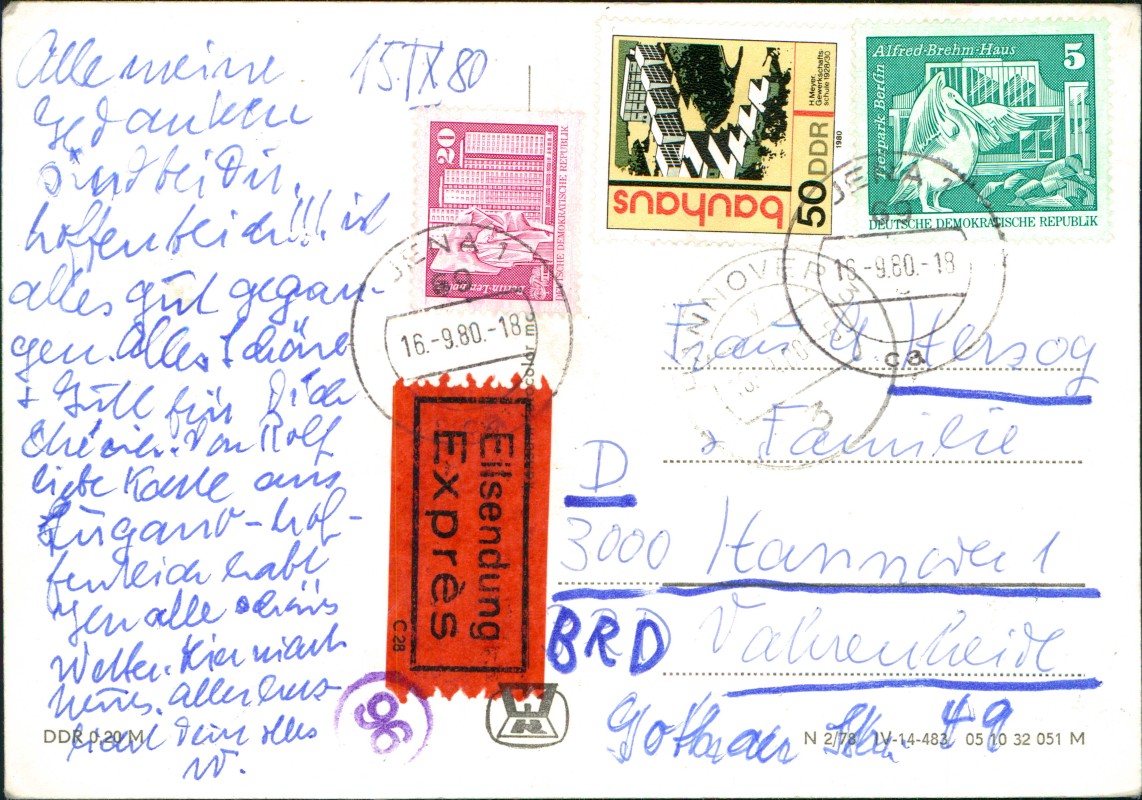 15 IX 80
Alle meine
Gedanken
sind bei Dir,
hoffentlich!!! ist
alles gut gegan-
gen. Alles Schöne
+ Gute für Dich
Von Rolf
liebe Karte aus
Lugano - hof-
fentlich habt
alle schönes
Wetter. Hier nichts
Neues. Allerherz-
W.
DDR 0,20 M
20
DEUTSCHE DEMOKRATISCHE REPUBLIK
JENA 1
69
16.-9.80.-18
color
bauhaus
50 DDR
H. Meyer,
Gewerkschafts-
schule 1928/30
1980
Alfred-Brehm-Haus
5
Tierpark Berlin
DEUTSCHE DEMOKRATISCHE REPUBLIK
JENA 1
69
16.-9.80.-18
ca
HANNOVER
3
Eilsendung
Exprès
C 28
96
Frau G. Herzog
+ Familie
D
3000 Hannover 1
BRD
Vahrenheide
Gothaer Str. 49
N 2/78 IV-14-483 05 10 32 051 M